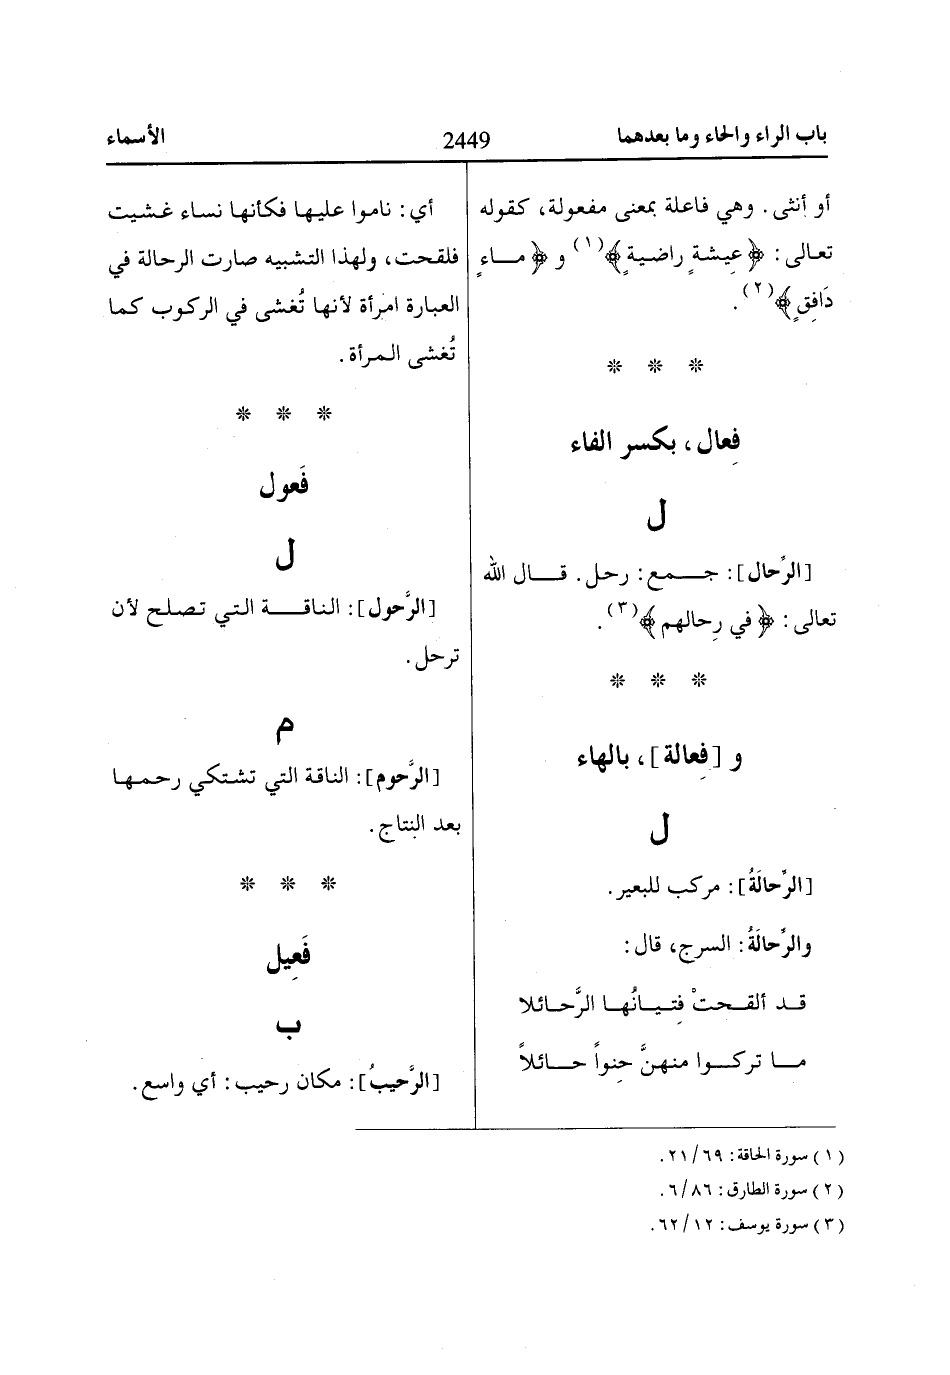 باب الراء والحاء وما بعدهما
2449
الأسماء
أو أنثى. وهي فاعلة بمعنى مفعولة، كقوله
تعالى: ﴿عيشةٍ راضيةٍ﴾(١) و ﴿ماءٍ
دَافِقٍ﴾(٢).
* * *
فِعال، بكسر الفاء
ل
[الرِّحال]: جمع: رحل. قال الله
تعالى: ﴿في رِحالهم﴾(٣).
* * *
و [فِعالة]، بالهاء
ل
[الرِّحالَةُ]: مركب للبعير.
والرِّحالَةُ: السرج، قال:
قد ألقحتْ فِتيانُها الرَّحائلا
ما تركوا منهنَّ حِنواً حائلاً
أي: ناموا عليها فكأنها نساء غشيت
فلقحت، ولهذا التشبيه صارت الرحالة في
العبارة امرأة لأنها تُغشى في الركوب كما
تُغشى المرأة.
* * *
فَعول
ل
[الرَّحول]: الناقة التي تصلح لأن
ترحل.
م
[الرَّحوم]: الناقة التي تشتكي رحمها
بعد النتاج.
* * *
فَعِيل
ب
[الرَّحيبُ]: مكان رحيب: أي واسع.
(١) سورة الحاقة: ٦٩/ ٢١.
(٢) سورة الطارق: ٨٦/ ٦.
(٣) سورة يوسف: ١٢/ ٦٢.